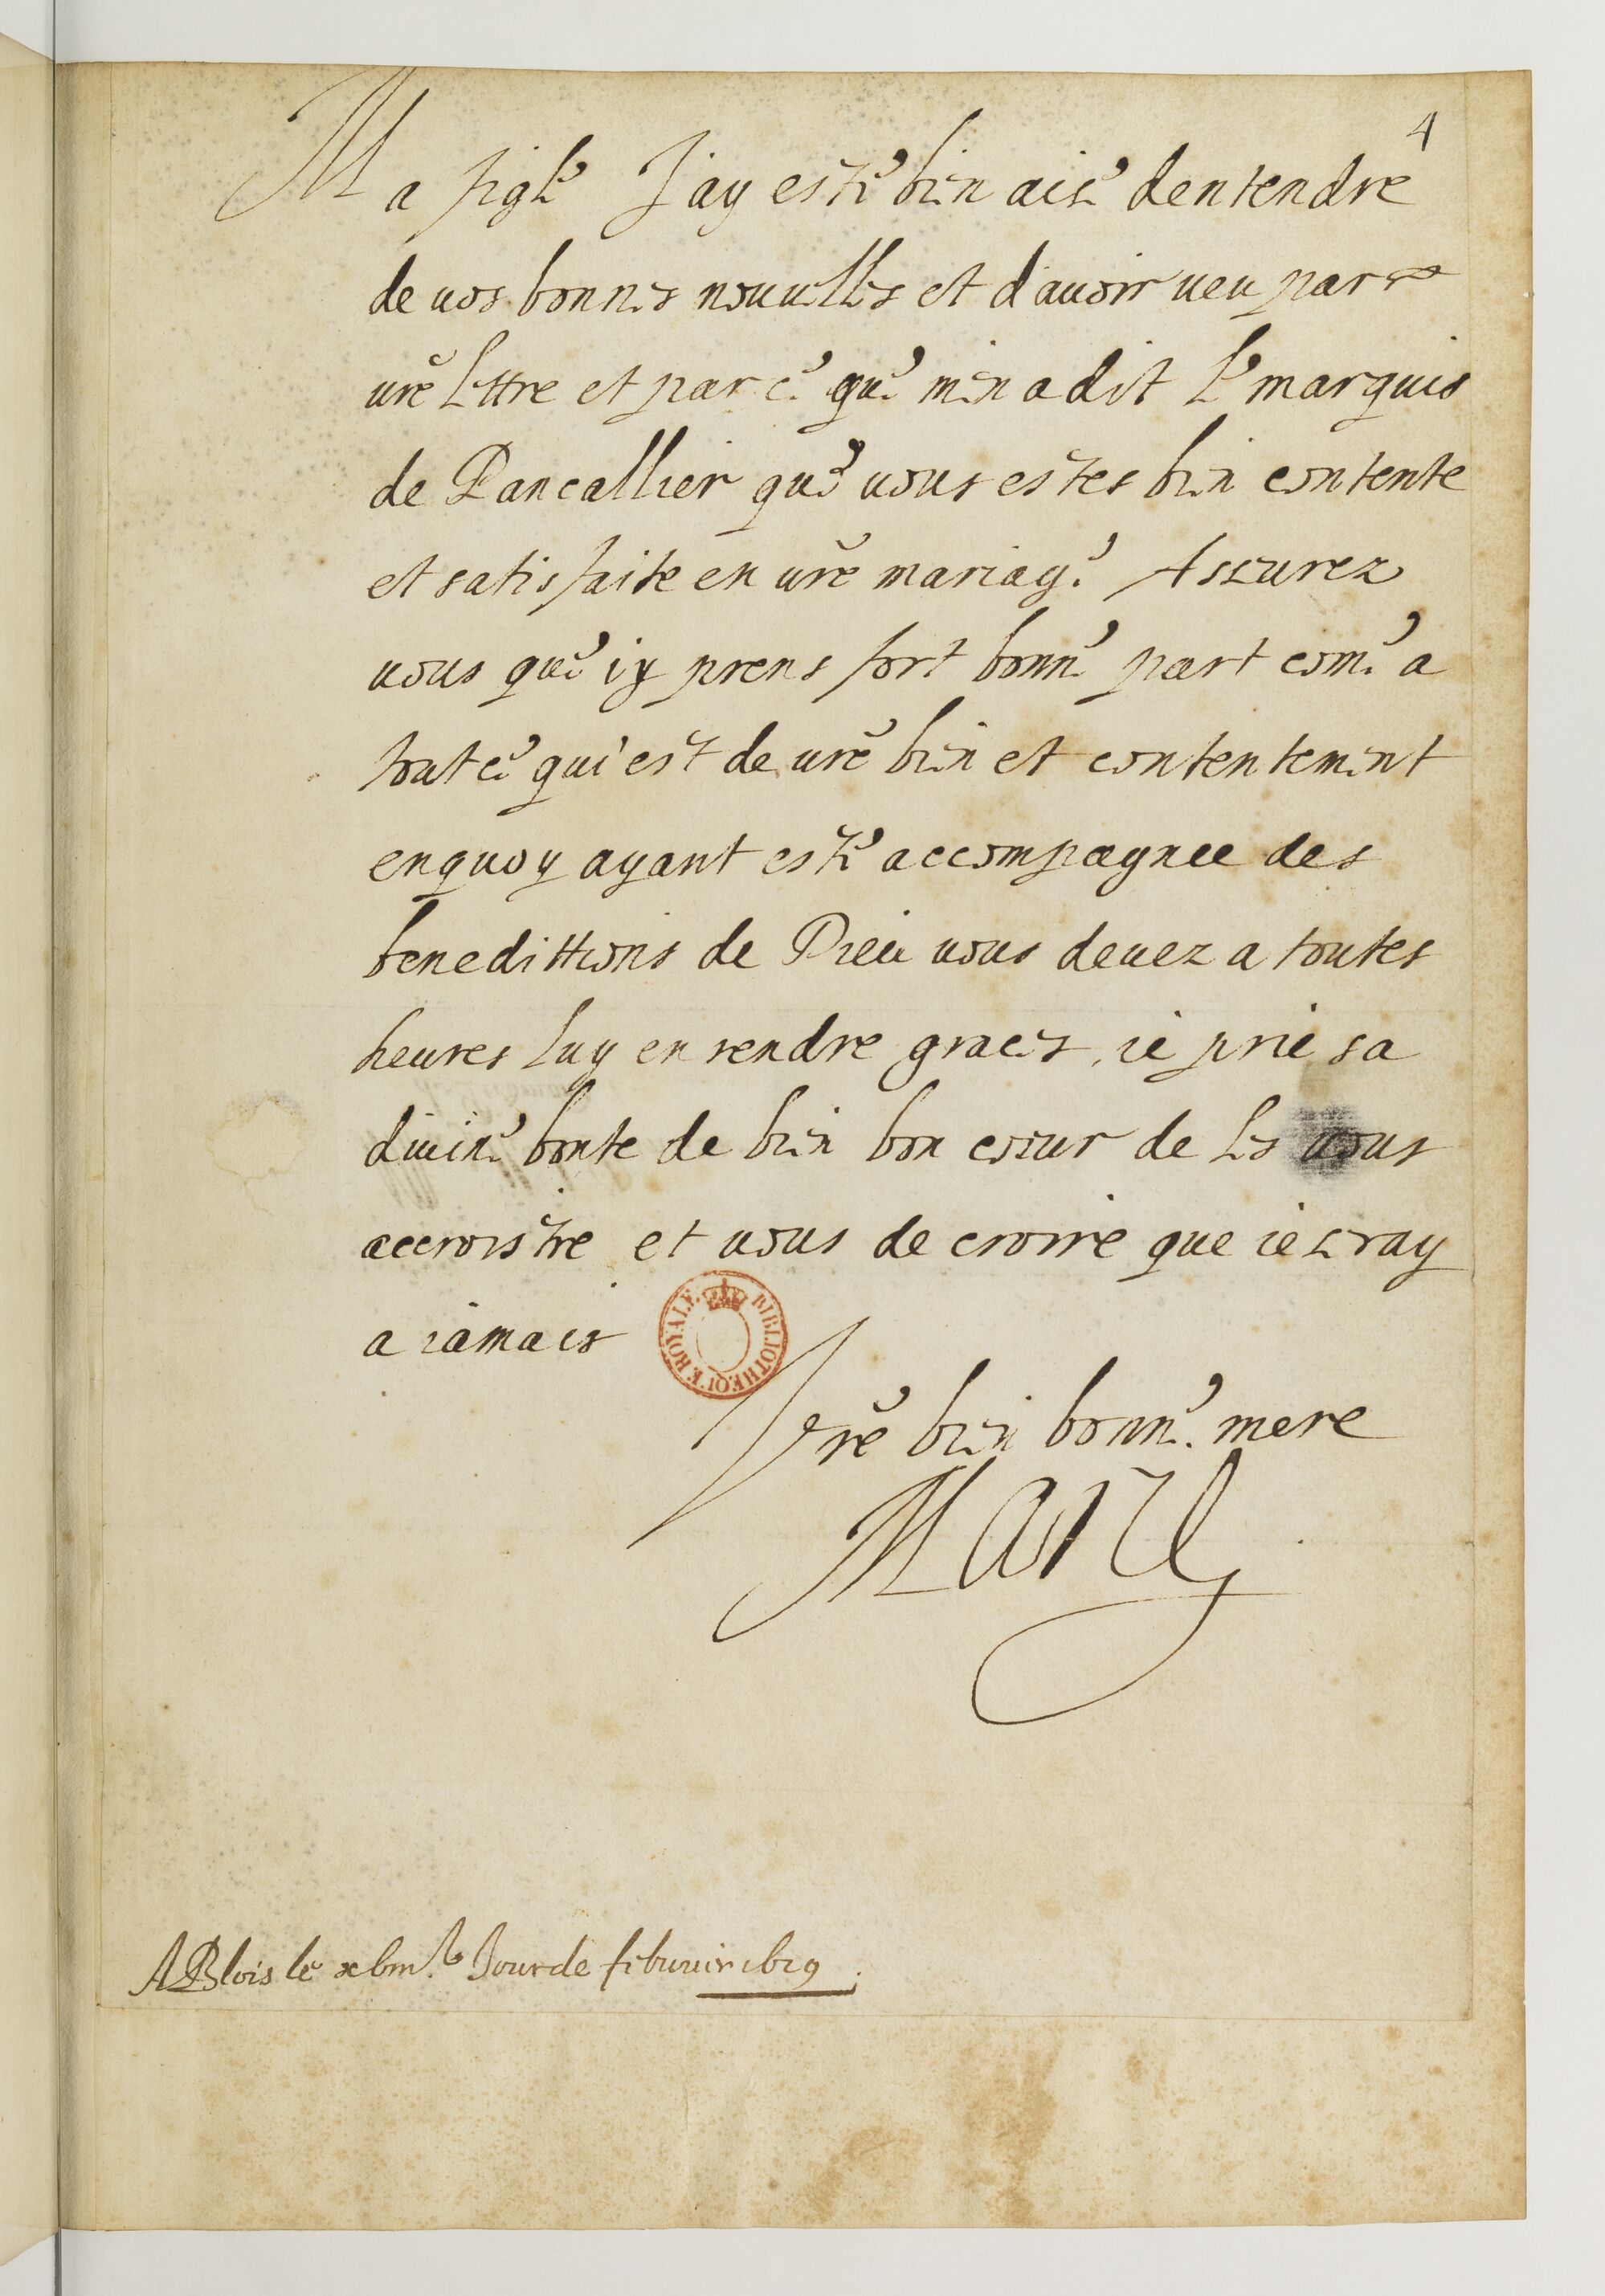 4
Ma figle Jay esté bien aise dentendre
de vos bonnes nouvelles et davoir veu par
vre lettre et par ce que men a dit le marquis
de Pancallier que vous estes bien contente
et satisfaite en vre mariage Assurez
vous que iy prens fort bonne part come a
tout ce qui est de vre bien et contentement
enquoy ayant esté accompagnee des
benedittions de Dieu vous devez a toutes
heures luy en rendre graces, ie prie sa
divine bonte de bien bon coeur de les vous
accroistre et vous de croire que ie seray
a iamais
BIBLIOTHEQUE ROYALE
Vre bien bonne mere
Marie
A Blois le xbiii.e Jour de febvrier 1619.